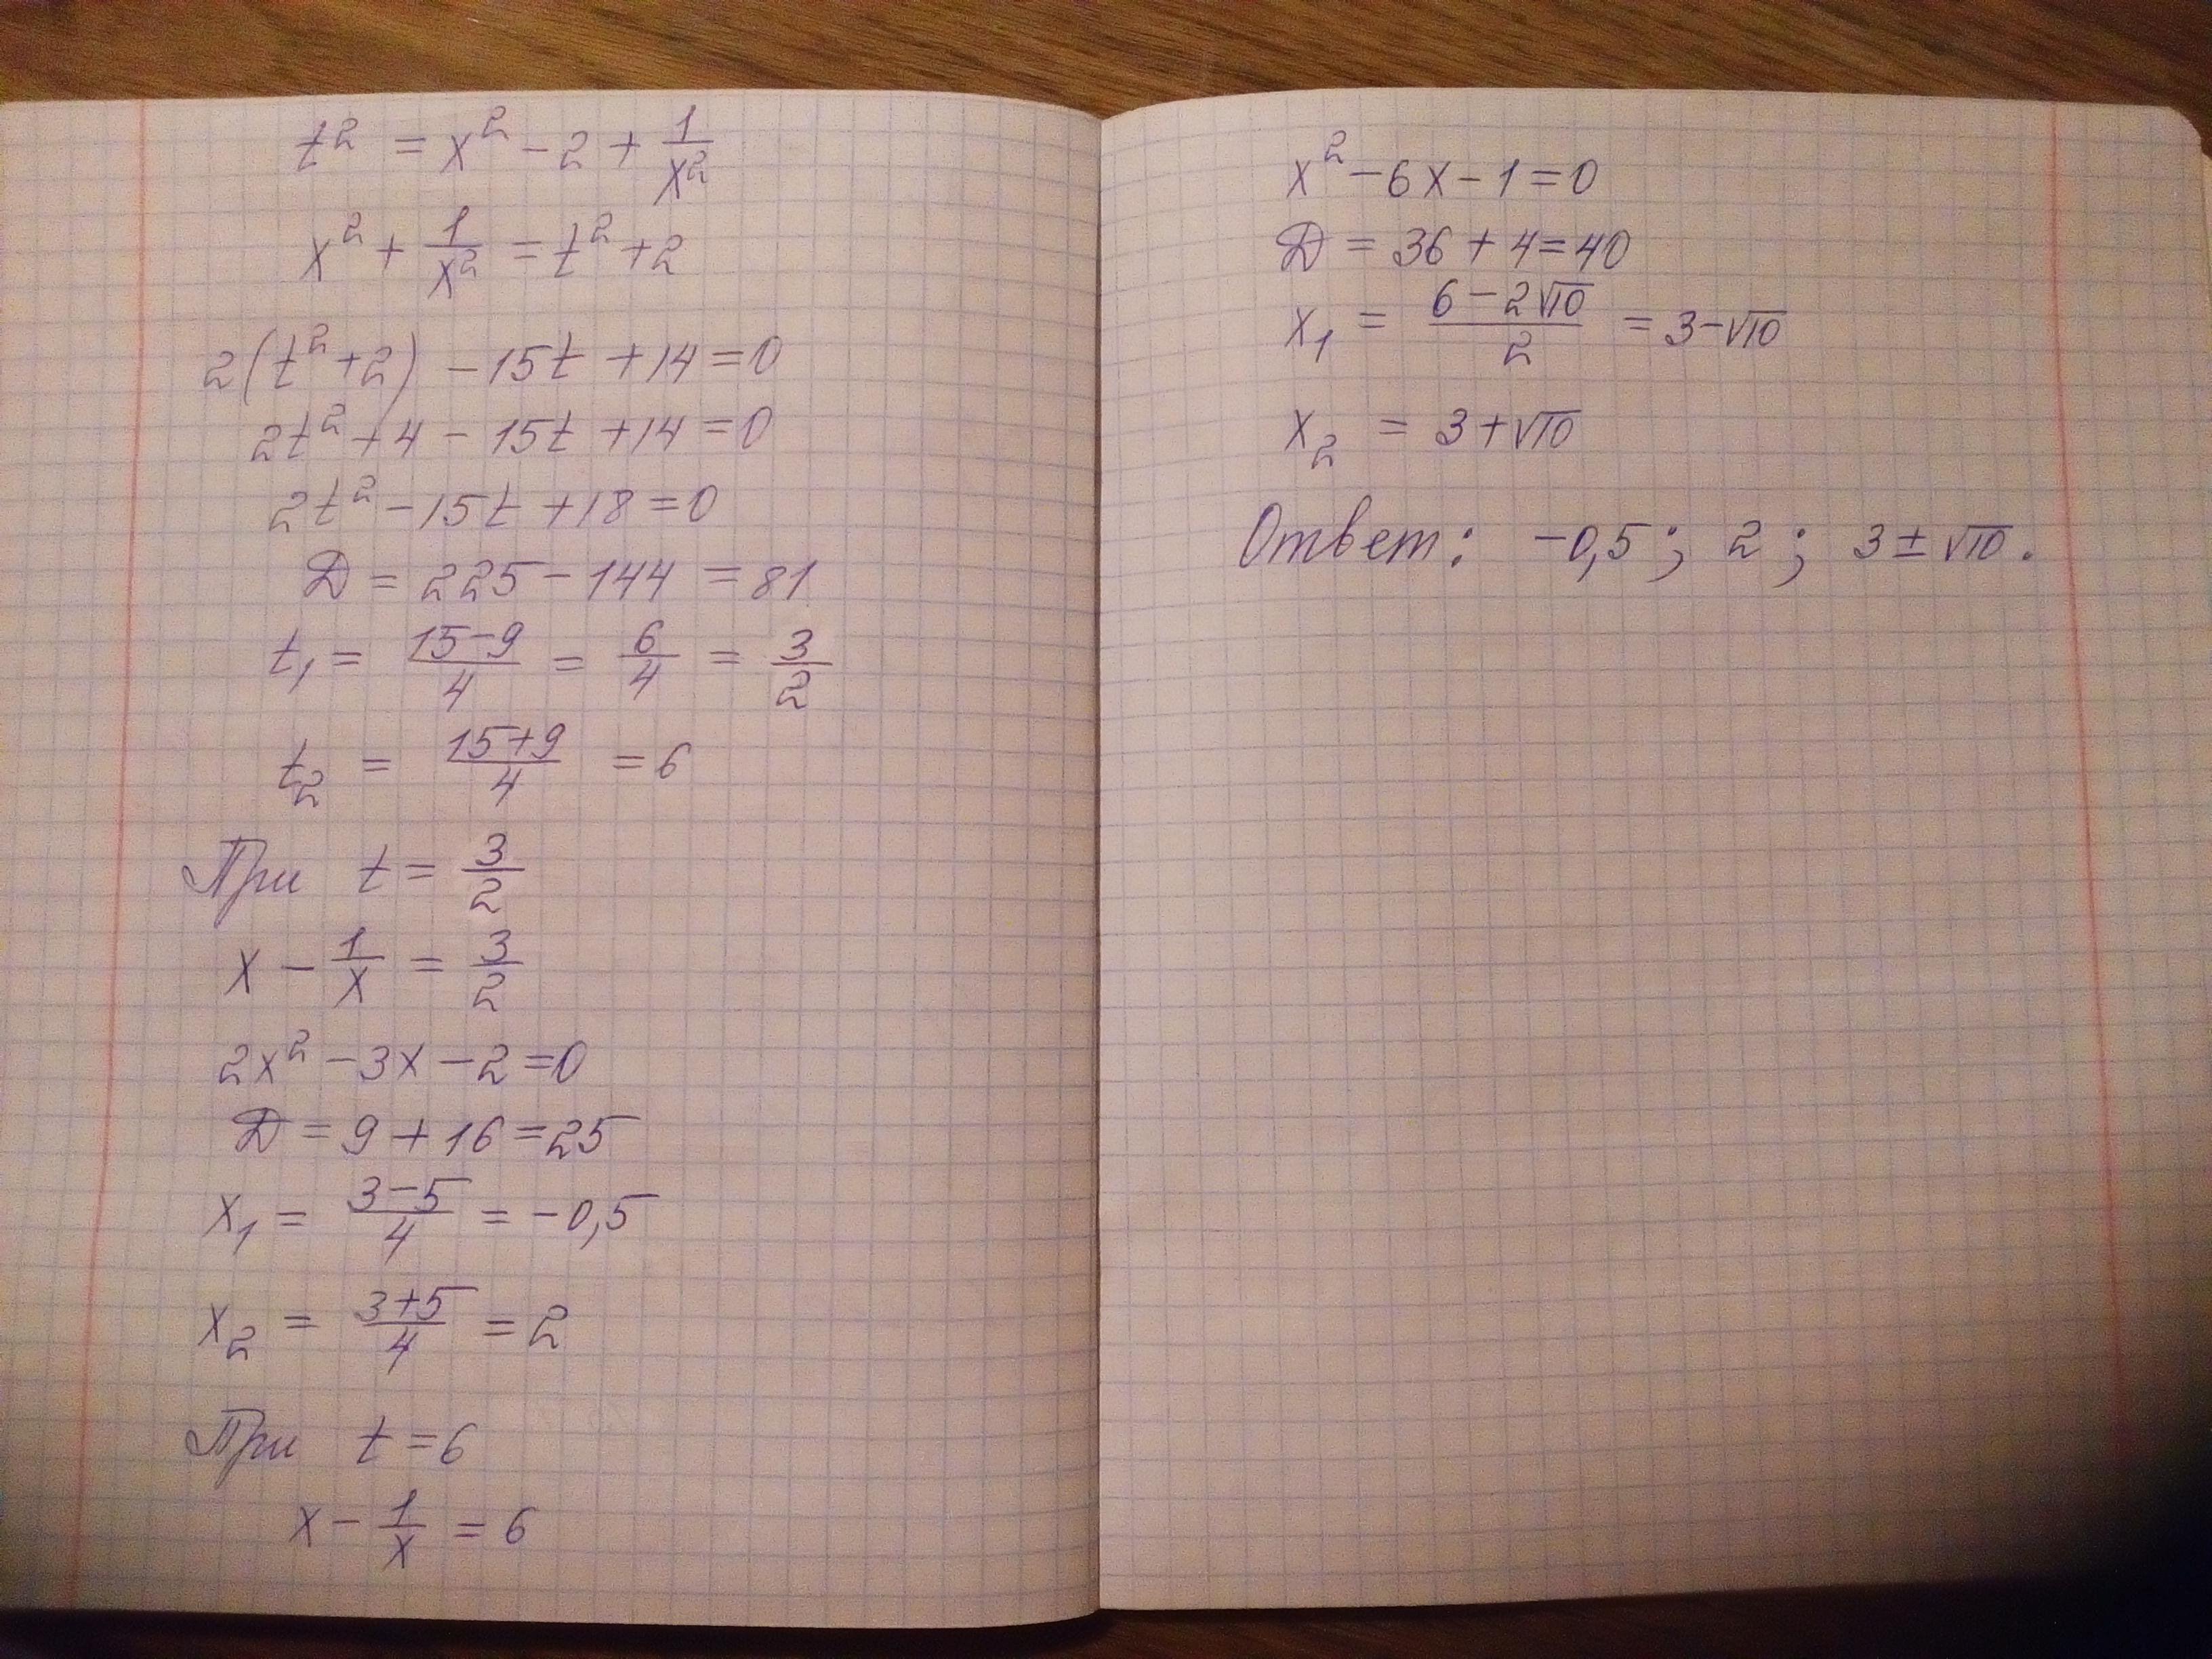 t² = x² - 2 + 1/x²
x² + 1/x² = t² + 2
2(t² + 2) - 15t + 14 = 0
2t² + 4 - 15t + 14 = 0
2t² - 15t + 18 = 0
D = 225 - 144 = 81
t₁ = (15-9)/4 = 6/4 = 3/2
t₂ = (15+9)/4 = 6
При t = 3/2
x - 1/x = 3/2
2x² - 3x - 2 = 0
D = 9 + 16 = 25
x₁ = (3-5)/4 = -0,5
x₂ = (3+5)/4 = 2
При t = 6
x - 1/x = 6
x² - 6x - 1 = 0
D = 36 + 4 = 40
x₁ = (6 - 2√10)/2 = 3 - √10
x₂ = 3 + √10
Ответ: -0,5; 2; 3 ± √10.